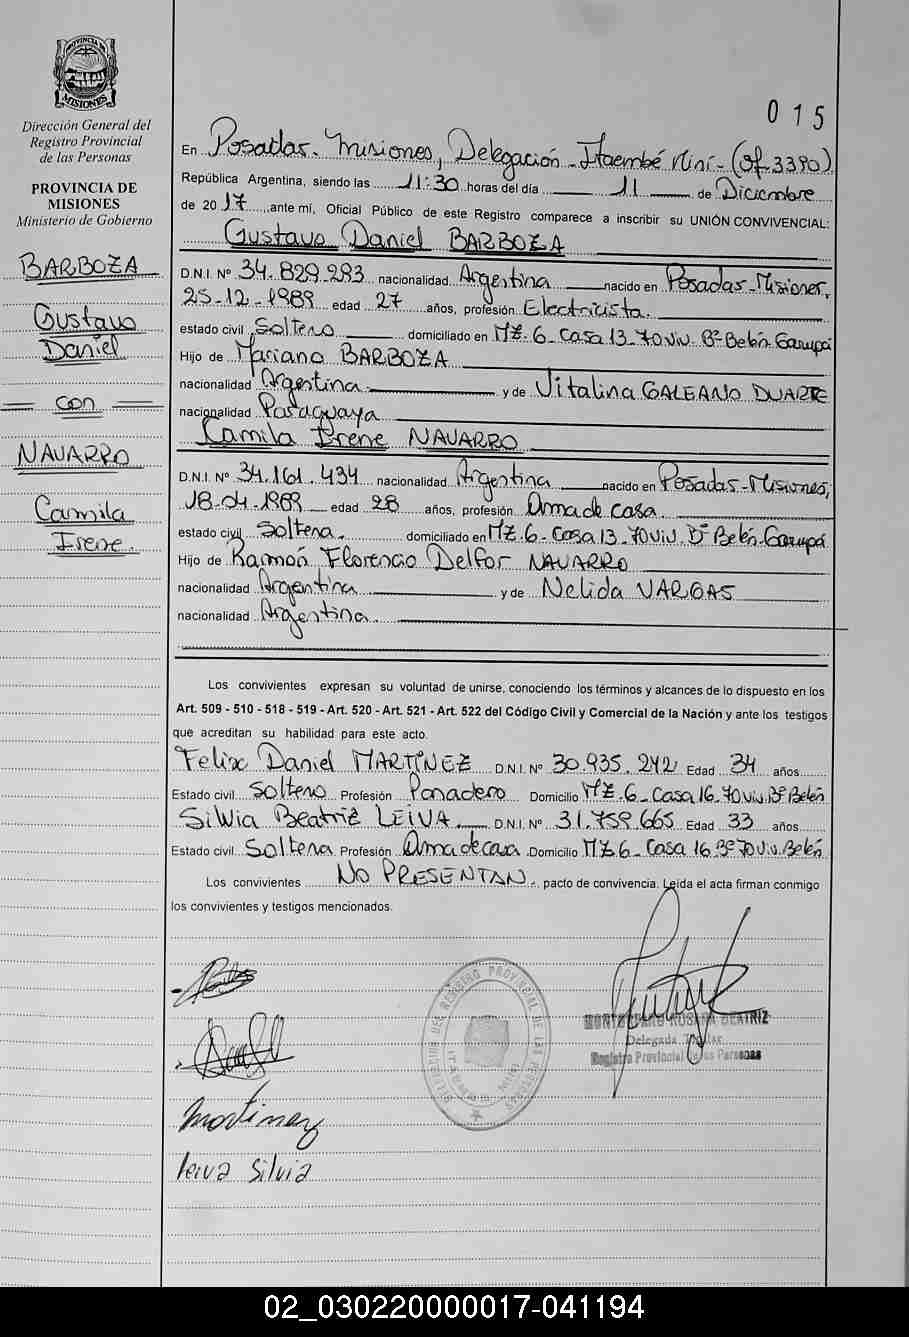 015
PROVINCIA DE
MISIONES
Dirección General del
Registro Provincial
de las Personas
PROVINCIA DE
MISIONES
Ministerio de Gobierno
BARBOZA
Gustavo
Daniel
con
NAVARRO
Camila
Irene.
En Posadas. Misiones, Delegación - Itaembé Miní - (Of. 3390)
República Argentina, siendo las 11:30 horas del día 11 de Diciembre
de 2017, ante mí, Oficial Público de este Registro comparece a inscribir su UNIÓN CONVIVENCIAL:
Gustavo Daniel BARBOZA
D.N.I. Nº 34.829.293 nacionalidad Argentina nacido en Posadas-Misiones,
25-12-1989 edad 27 años, profesión Electricista.
estado civil Soltero domiciliado en MZ.6-Casa 13-70 viv. Bº Belén-Garupá
Hijo de Mariano BARBOZA
nacionalidad Argentina y de Vitalina GALEANO DUARTE
nacionalidad Paraguaya
Camila Irene NAVARRO
D.N.I. Nº 34.161.434 nacionalidad Argentina nacido en Posadas-Misiones,
18-04-1989 edad 28 años, profesión Ama de casa.
estado civil Soltera. domiciliado en MZ.6-Casa 13-70 viv. Bº Belén-Garupá
Hijo de Ramón Florencio Delfor NAVARRO
nacionalidad Argentina y de Nelida VARGAS
nacionalidad Argentina.
Los convivientes expresan su voluntad de unirse, conociendo los términos y alcances de lo dispuesto en los
Art. 509 - 510 - 518 - 519 - Art. 520 - Art. 521 - Art. 522 del Código Civil y Comercial de la Nación y ante los testigos
que acreditan su habilidad para este acto.
Felix Daniel MARTINEZ D.N.I. Nº 30.935.242 Edad 34 años
Estado civil Soltero Profesión Panadero Domicilio MZ.6-Casa 16-70 viv. Bº Belén
Silvia Beatriz LEIVA. D.N.I. Nº 31.759.665 Edad 33 años
Estado civil Soltera Profesión Ama de casa Domicilio MZ6-Casa 16 Bº 70 viv. Belén
Los convivientes NO PRESENTAN, pacto de convivencia. Leída el acta firman conmigo
los convivientes y testigos mencionados.
DELEGACION DEL REGISTRO PROVINCIAL DE LAS PERSONAS
ITAEMBE MINI
ROSANA BEATRIZ
Delegada Titular
Registro Provincial de las Personas
Martinez
Leiva Silvia
02_030220000017-041194